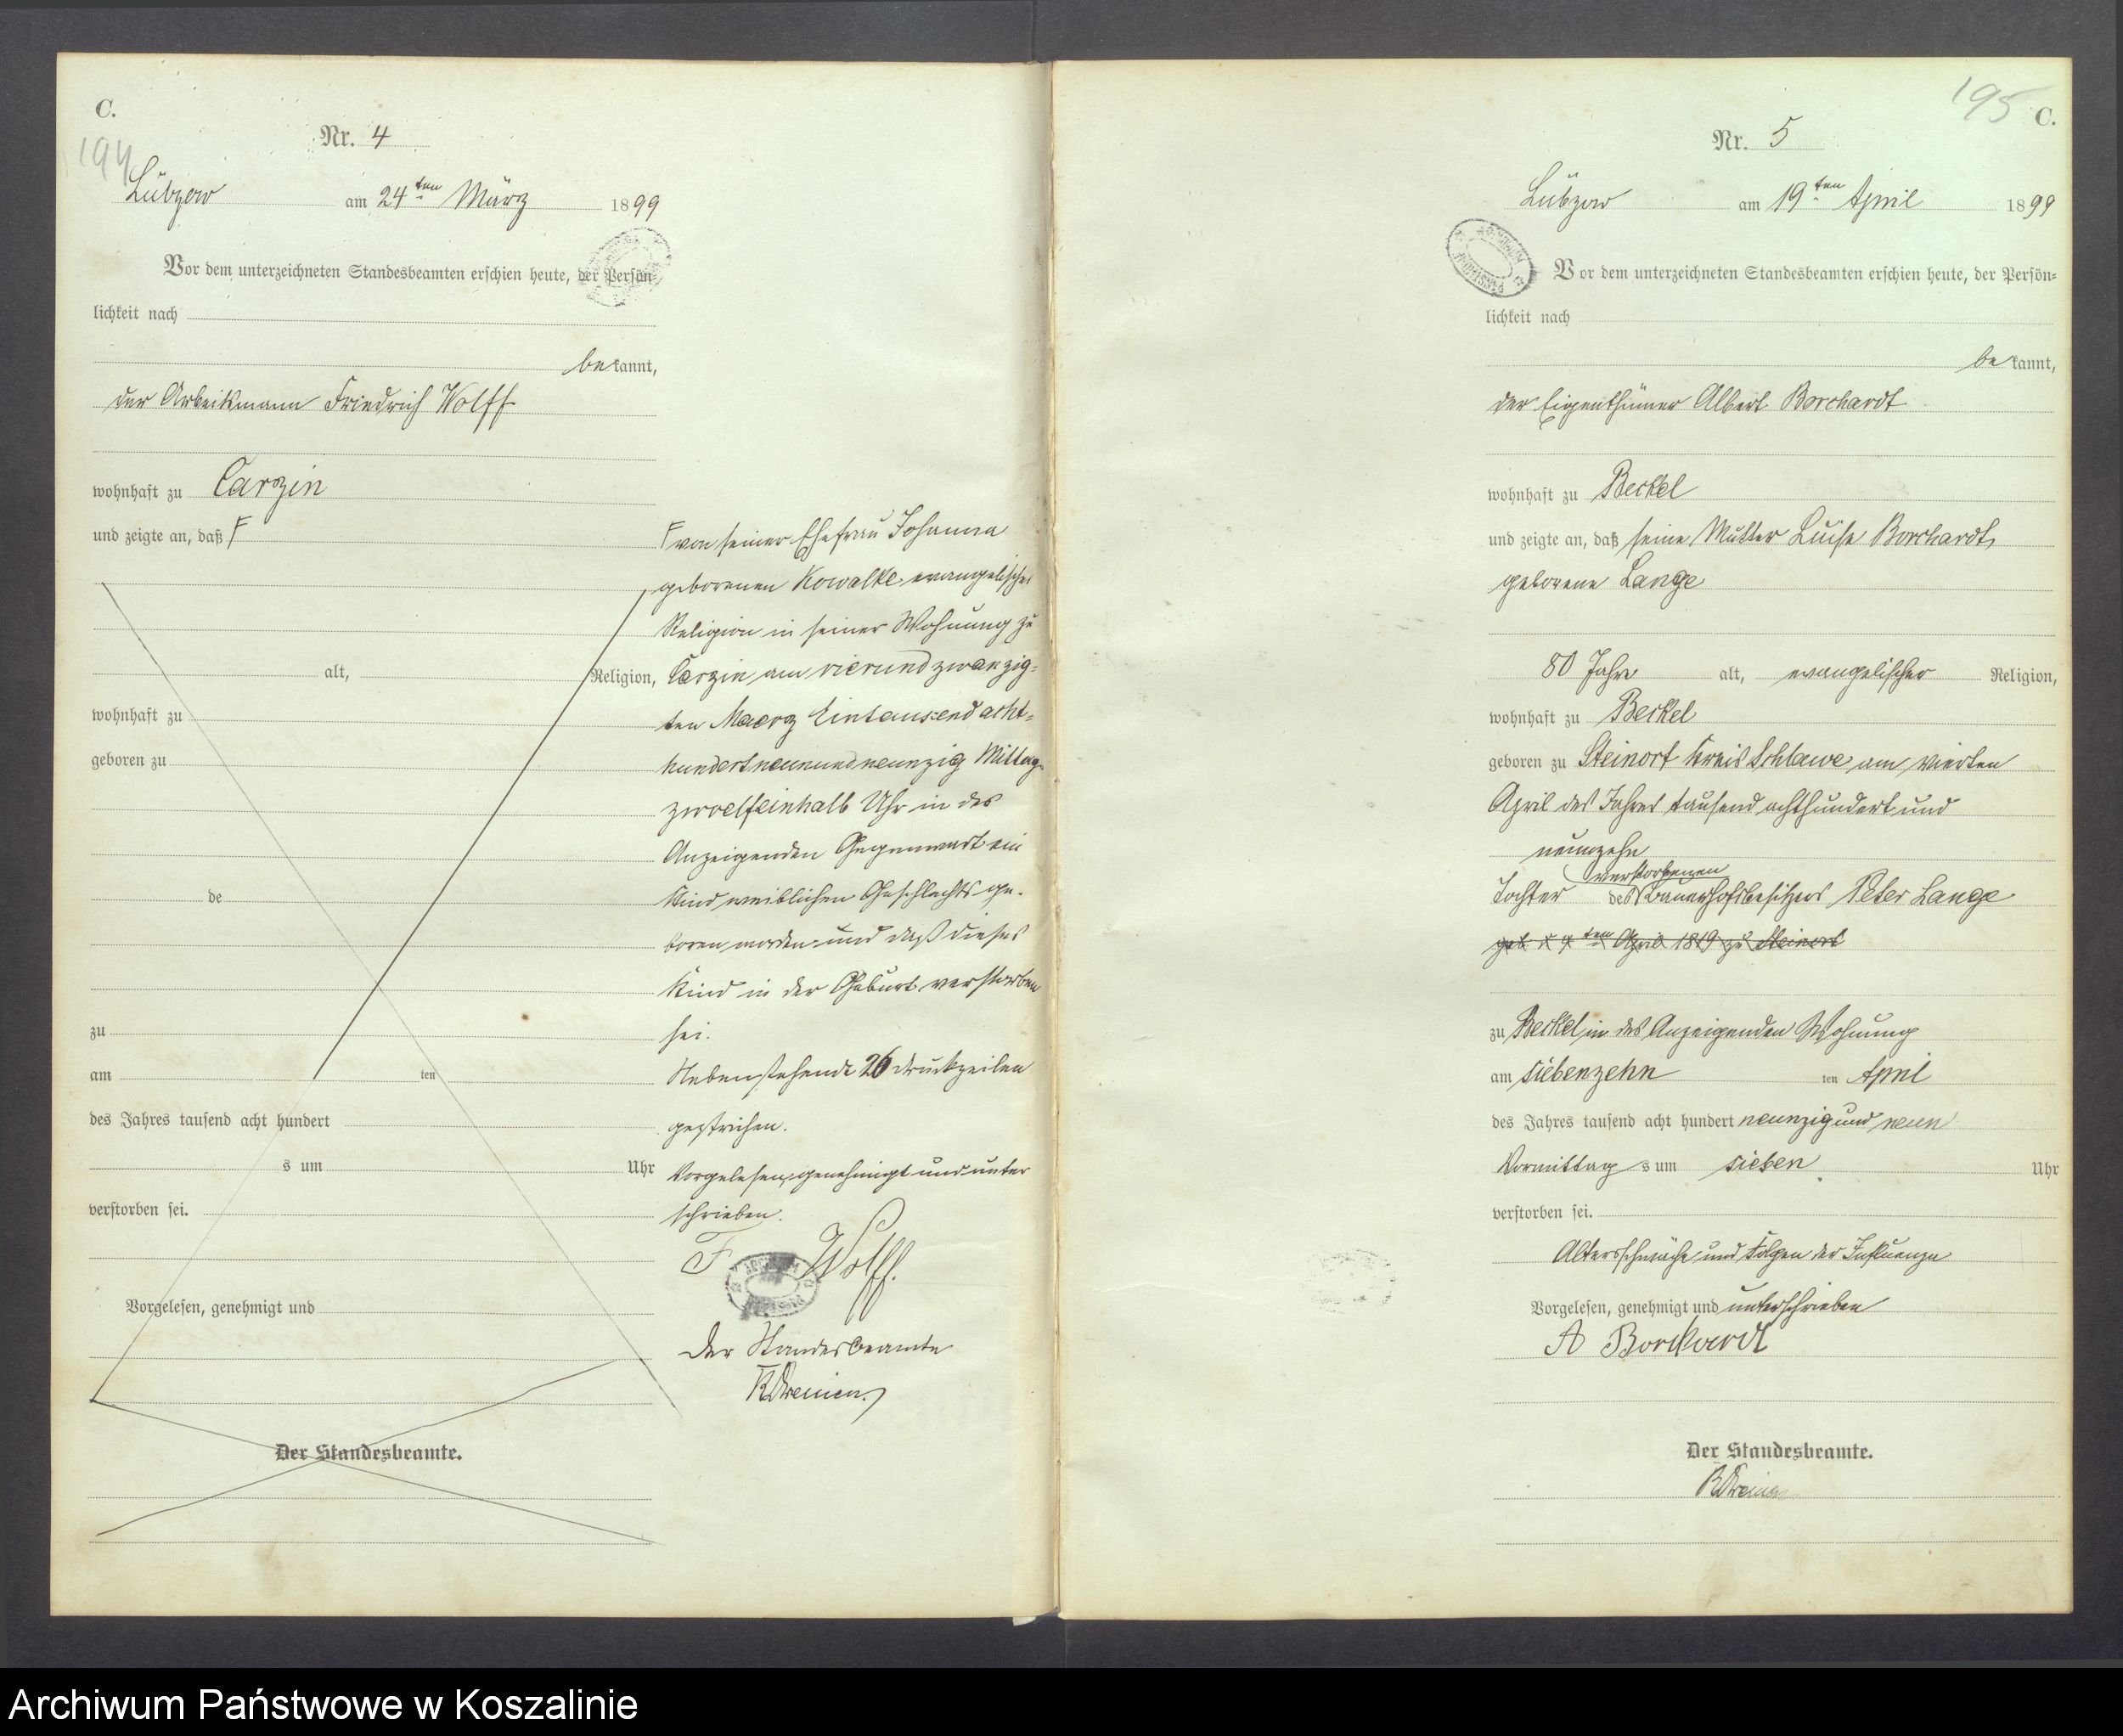 C.
194
Nr. 4
Lübzow am 24ten März 1899
Vor dem unterzeichneten Standesbeamten erschien heute, der Persön-
lichkeit nach
bekannt,
der Arbeitsmann Friedrich Wolff
wohnhaft zu Carzin
und zeigte an, daß F
alt, Religion,
wohnhaft zu
geboren zu
de
zu
am ten
des Jahres tausend acht hundert
s um Uhr
verstorben sei.
Vorgelesen, genehmigt und
Der Standesbeamte.
F von seiner Ehefrau Johanna
geborenen Kowalke, evangelischer
Religion in seiner Wohnung zu
Carzin, am vierundzwanzig-
ten Maerz Eintausend acht-
hundertneunundneunzig Mittag
zwoelfeinhalb Uhr in des
Anzeigenden Gegenwart ein
Kind weiblichen Geschlechts ge-
boren worden und daß dieses
Kind in der Geburt verstorben
sei.
Nebenstehende 26 Druckzeilen
gestrichen.
Vorgelesen, genehmigt und unter
schrieben.
F Wolff.
Der Standesbeamte
195
C.
Nr. 5
Lübzow am 19ten April 1899
Vor dem unterzeichneten Standesbeamten erschien heute, der Persön-
lichkeit nach
bekannt,
der Eigenthümer Albert Borchardt
wohnhaft zu Beckel
und zeigte an, daß seine Mutter Luise Borchardt,
geborene Lange
80 Jahre alt, evangelischer Religion,
wohnhaft zu Beckel
geboren zu Steinort Kreis Schlawe am vierten
April des Jahres tausend achthundert und
neunzehn
verstorbenen
Tochter des Bauerhofsbesitzers Peter Lange
geb. d. 4ten April 1819 zu Steinort
zu Beckel, in des Anzeigenden Wohnung
am siebenzehn ten April
des Jahres tausend acht hundert neunzig und neun
Vormittag s um sieben Uhr
verstorben sei.
Altersschwäche und Folgen der Influenza
Vorgelesen, genehmigt und unterschrieben
A Borchardt
Der Standesbeamte.
Archiwum Państwowe w Koszalinie